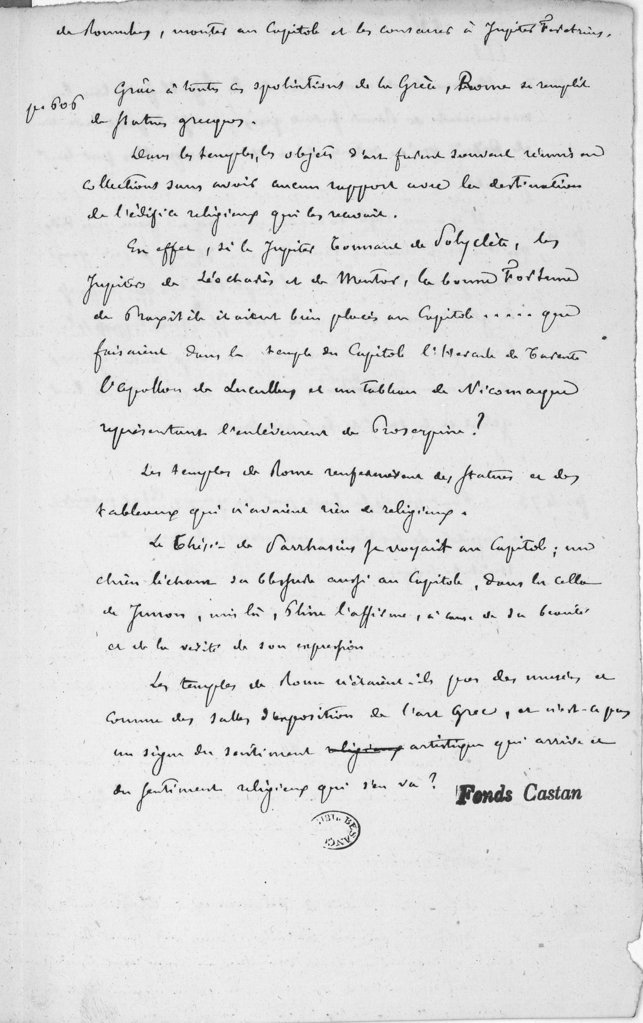 de Romulus, monter au Capitole et les consacrer à Jupiter Férétrius.
Grâce à toutes ces spoliations de la Grèce, Rome se remplit
p. 606
de statues grecques.
Dans les temples, les objets d'art furent souvent réunis en
collections sans avoir aucun rapport avec la destination
de l'édifice religieux qui les recevait.
En effet, si le Jupiter tonnant de Polyclète, les
Jupiters de Léocharès et de Mentor, la bonne Fortune
de Praxitèle étaient bien placés au Capitole ..... que
faisaient dans le temple du Capitole l'Hercule de Tarente
l'Apollon de Lucullus et un tableau de Nicomaque
représentant l'enlèvement de Proserpine?
Les temples de Rome renfermèrent des statues et des
tableaux qui n'avaient rien de religieux.
Le Thésée de Parrhasius se voyait au Capitole; un
chien léchant sa blessure aussi au Capitole, dans la cella
de Junon, mis là, Pline l'affirme, à cause de sa beauté
et de la vérité de son expression
Les temples de Rome n'étaient-ils pas des musées et
comme des salles d'exposition de l'art Grec, et n'est-ce pas
un signe du sentiment religieux artistique qui arrive et
du sentiment religieux qui s'en va?
Fonds Castan
BIBL. BESANÇ